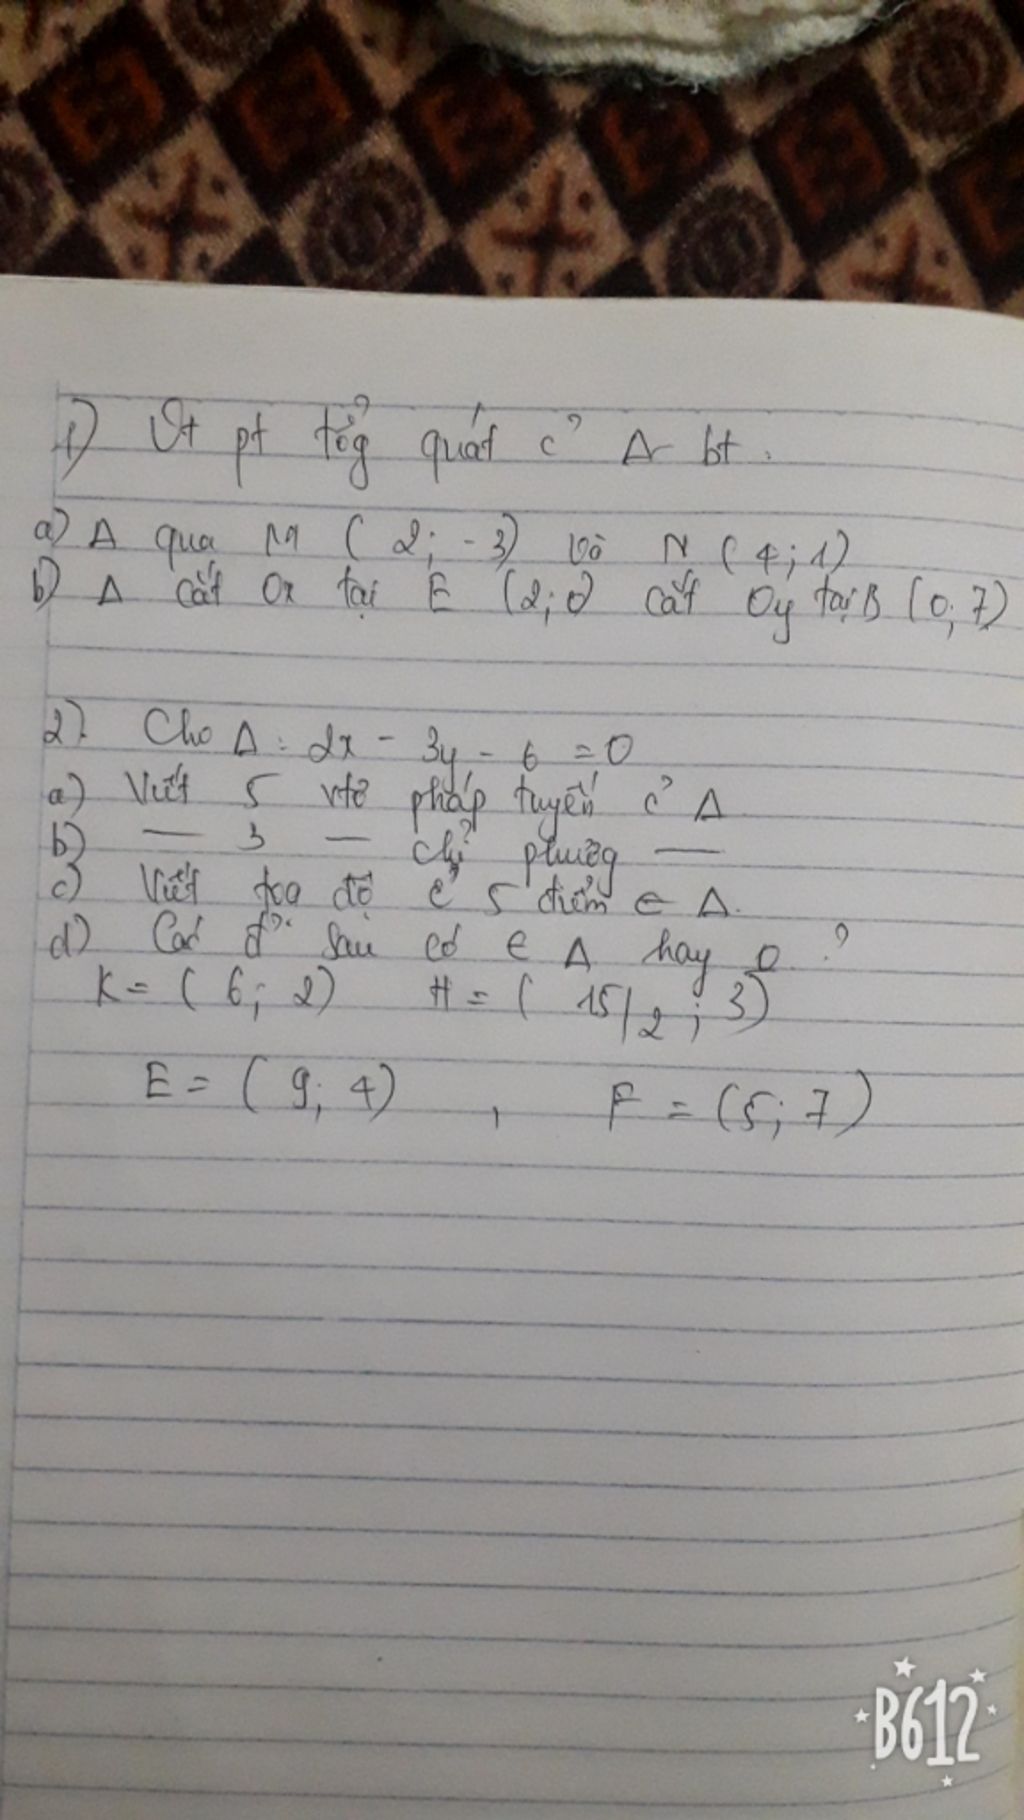 1) Vt pt tổg quát c̉ Δ bt.
a) Δ qua M ( 2; -3) và N ( 4; 1)
b) Δ cắt Ox tại E (2; 0) cắt Oy tại B (0; 7)
2). Cho Δ: 2x - 3y - 6 = 0
a) Viết 5 vtơ pháp tuyến c̉ Δ
b) — 3 — chỉ phươg —
c) Viết tọa độ c̉ 5 điểm ∈ Δ.
d) Các đ̉' sau có ∈ Δ hay 0 ?
K = ( 6; 2) H = ( 15/2 ; 3)
E = ( 9; 4) , F = (5; 7)
B612